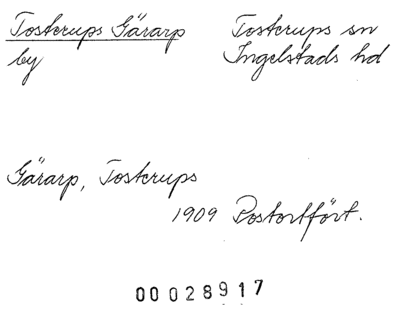 Tosterups Gärarp Tosterups sn
by Ingelstads hd
Gärarp, Tosterups
1909 Postortfört.
00028917